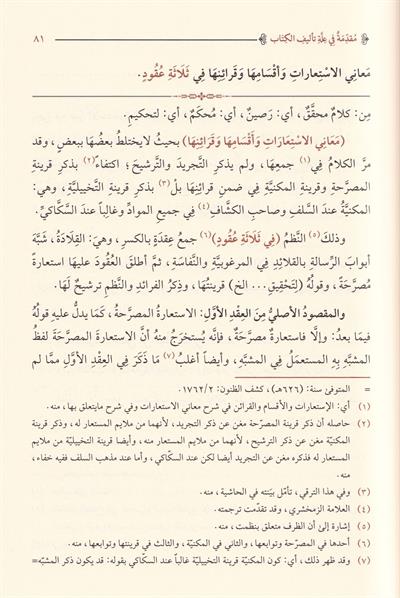 مُقَدِّمَةٌ فِي عِلَّةِ تَأْلِيفِ الكِتَاب
٨١
مَعانِي الاسْتِعاراتِ وأقْسَامِها وَقَرائِنِهَا فِي ثَلَاثَةِ عُقُودٍ.
مِن: كلامٌ محقَّقٌ، أي: رَصينٌ، أي: مُحكَمٌ، أي: لتحكيمِ.
(مَعَانِي الاسْتِعَارَاتِ وَأَقْسَامِهَا وَقَرَائِنِهَا) بحيثُ لا يختلطُ بعضُها ببعضٍ، وقد
مرَّ الكلامُ فِي(١) جمعِها، ولم يذكرِ التَّجريدَ والتَّرشيحَ؛ اكتفاءً(٢) بذكرِ قرينةِ
المصرَّحةِ وقرينةِ المكنيَّةِ في ضمنِ قرائنِهَا بلْ(٣) بذكرِ قرينةِ التَّخييليَّةِ، وهي:
المكنيَّةُ عندَ السَّلفِ وصاحبِ الكشَّافِ(٤) في جميعِ الموادِّ وغالباً عندَ السَّكَّاكيِّ.
وذلكَ(٥) النَّظمُ (فِي ثَلَاثَةِ عُقُودٍ)(٦) جمعُ عِقدَةٍ بالكسرِ، وهيَ: القِلادَةُ، شَبَّهَ
أبوابَ الرِّسالةِ بالقلائدِ فِي المرغوبيَّةِ والنَّفاسَةِ، ثمَّ أطلقَ العُقودَ عليها استعارةً
مُصرَّحَةً، وقولُهُ (لِتَحْقِيقِ... الخ) قرينتُهَا، وذِكرُ الفرائدِ والنَّظمِ ترشيحٌ لَهَا.
والمقصودُ الأصليُّ مِنَ العِقدِ الأوَّلِ: الاستعارةُ المصرَّحةُ، كمَا يدلُّ عليهِ قولُهُ
فيمَا بعدُ: وإلَّا فاستعارةٌ مصرَّحةٌ، فإنَّه يُستخرَجُ منهُ أنَّ الاستعارةَ المصرَّحةَ لفظُ
المشبَّهِ بِهِ المستعمَلُ في المشبَّهِ، وأيضاً أغلبُ(٧) مَا ذَكَرَ فِي العِقْدِ الأوَّلِ ممَّا لم
= المتوفى سنة: (٦٢٦هـ)، كشف الظنون: ١٧٦٢/٢.
(١) أي: الإستعارات والأقسام والقرائن في شرح معاني الاستعارات وفي شرح مايتعلق بها، منه.
(٢) حاصله أن ذكر قرينة المصرّحة مغن عن ذكر التجريد، لأنهما من ملايم المستعار له، وذكر قرينة
المكنيّة مغن عن ذكر الترشيح، لأنهما من ملايم المستعار منه، وأيضا قرينة التخييليّة من ملايم
المستعار له فذكره مغن عن ذكر التجريد أيضا لكن عند السكّاكي، وأما عند مذهب السلف ففيه خفاء،
منه.
(٣) وفي هذا الترقي، تأمّل بيّنته في الحاشية، منه.
(٤) العلامة الزمخشري، وقد تقدّمت ترجمته.
(٥) إشارة إلى أن الظرف متعلق بنظمت، منه.
(٦) أحدها في المصرحة وتوابعها، والثاني في المكنيّة، والثالث في قرينتها وتوابعها، منه.
(٧) وقد ظهر ذلك، أي: كون المكنيّة قرينة التخييليّة غالباً عند السكّاكي بقوله: قد يكون ذكر المشبه=